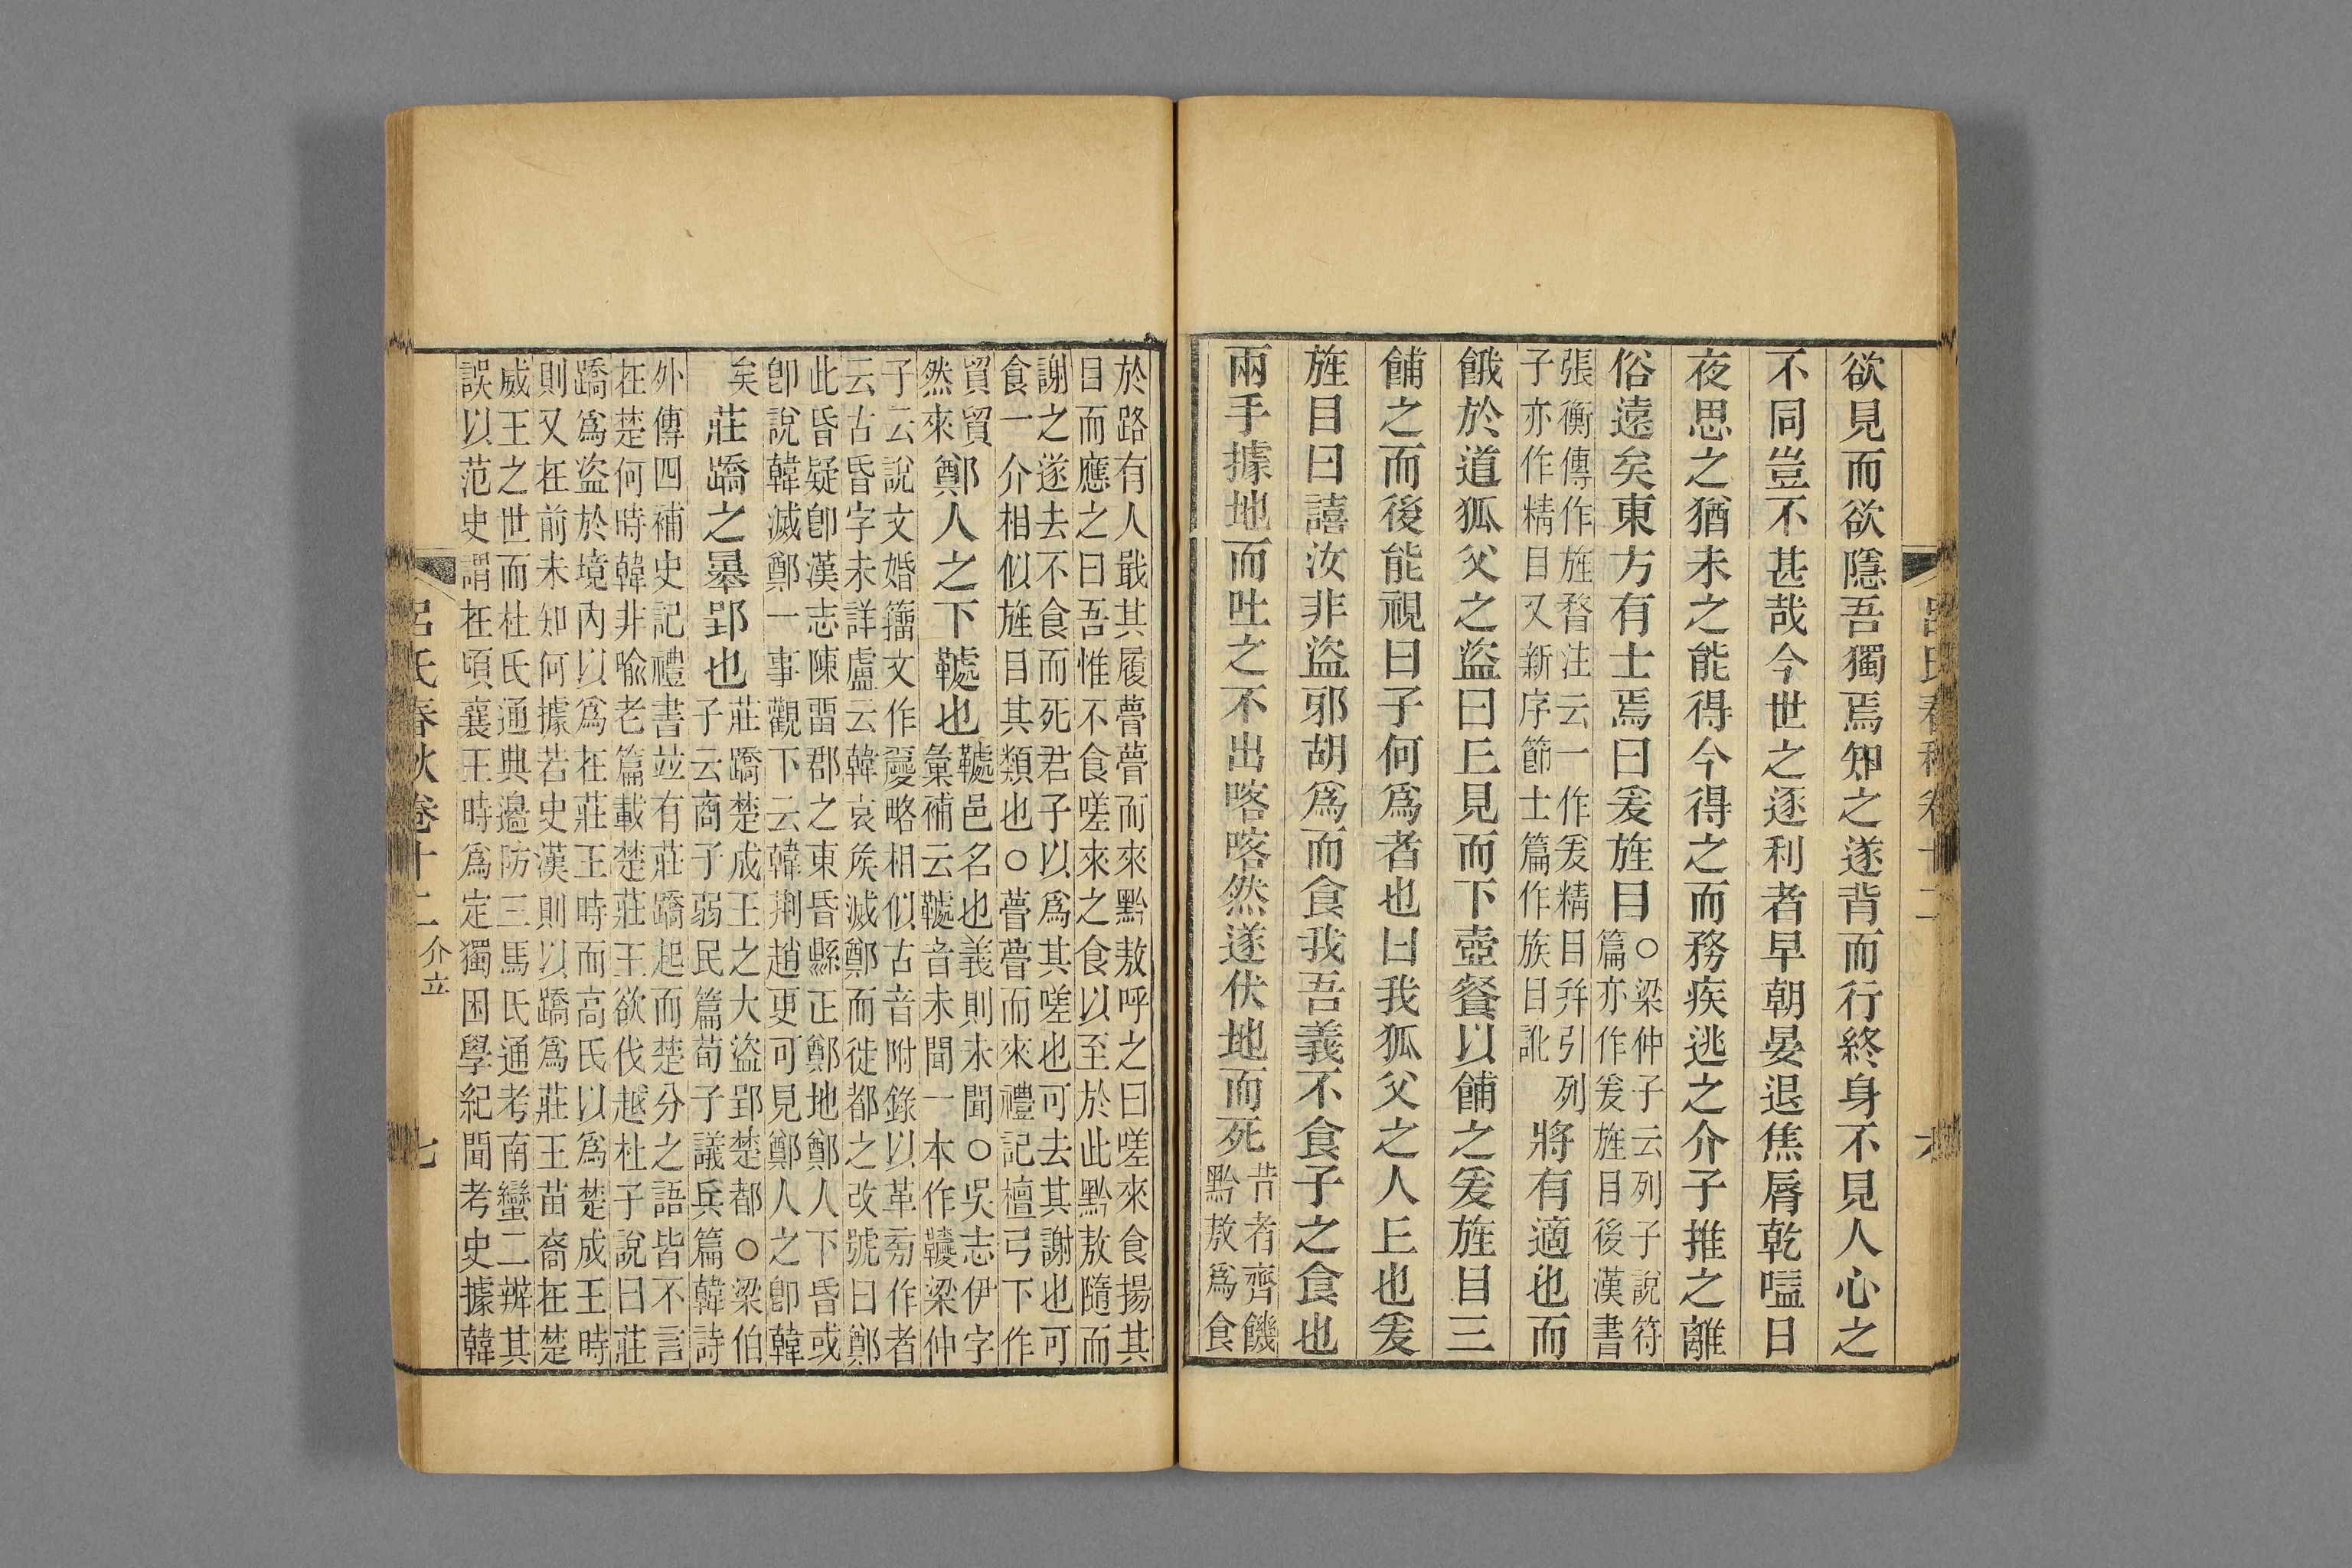 呂氏春秋卷十二 六
欲見而欲隱吾獨焉知之遂背而行終身不見人心之
不同豈不甚哉今世之逐利者早朝晏退焦脣乾嗌日
夜思之猶未之能得今得之而務疾逃之介子推之離
俗遠矣東方有士焉曰爰旌目○梁仲子云列子說符篇亦作爰旌目後漢書
張衡傳作旌瞀注云一作爰精目幷引列子亦作精目又新序節士篇作族目訛將有適也而
餓於道狐父之盜曰丘見而下壺餐以餔之爰旌目三
餔之而後能視曰子何爲者也曰我狐父之人丘也爰
旌目曰譆汝非盜邪胡爲而食我吾義不食子之食也
兩手據地而吐之不出喀喀然遂伏地而死昔者齊饑黔敖爲食
於路有人戢其履瞢瞢而來黔敖呼之曰嗟來食揚其目而應之曰吾惟不食嗟來之食以至於此黔敖隨而
謝之遂去不食而死君子以爲其嗟也可去其謝也可食一介相似旌目其類也○瞢瞢而來禮記檀弓下作
貿貿然來鄭人之下也邑名也義則未聞○吳志伊字彙補云音未聞一本作梁仲
子云說文婚籀文作略相似古音附錄以革旁作者云古昏字未詳盧云韓哀矦滅鄭而徙都之改號曰鄭
此昏疑卽漢志陳畱郡之東昏縣正鄭地鄭人下昏或卽說韓滅鄭一事觀下云韓荆趙更可見鄭人之卽韓
矣莊蹻之暴郢也莊蹻楚成王之大盜郢楚都○梁伯子云商子弱民篇荀子議兵篇韓詩
外傳四補史記禮書竝有莊蹻起而楚分之語皆不言在楚何時韓非喻老篇載楚莊王欲伐越杜子說曰莊
蹻爲盜於境內以爲在莊王時而高氏以爲楚成王時則又在前未知何據若史漢則以蹻爲莊王苗裔在楚
威王之世而杜氏通典邊防三馬氏通考南蠻二辨其誤以范史謂在頃襄王時爲定獨困學紀聞考史據韓
呂氏春秋卷十二 介立 七